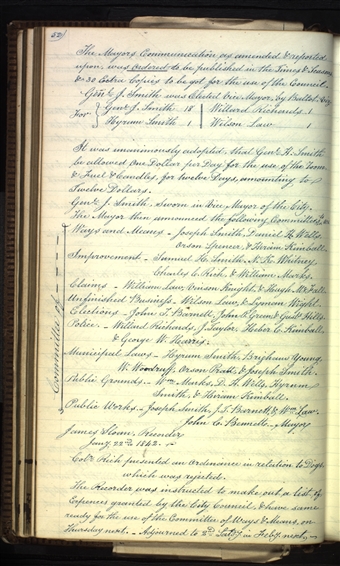 52
The Mayors Communication as amended & reported
upon, was ordered to be published in the Times & Seasons
& 30 Extra Copies to be got for the use of the Council.
Genl. J. Smith was Elected Vice Mayor, by Ballot, Viz
For Genl. J. Smith 18 Willard Richards 1
Hyrum Smith 1 Wilson Law 1
It was unanimously adopted, that Genl. H. Smith
be allowed One Dollar per Day, for the use of the Room,
& Fuel & Candles, for twelve Days, amounting to
Twelve Dollars.
Genl. J. Smith Sworn in Vice Mayor of the City.
The Mayor then announced the following Committees,
Committee of
Ways and Means - Joseph Smith, Daniel H. Wells,
Orson Spencer, & Hiram Kimball.
Improvement - Samuel H. Smith, N. K. Whitney
Charles C. Rich, & William Marks.
Claims - William Law, Vinson Knight, & Hugh McFall.
Unfinished Business - Wilson Law, & Lyman Wight.
Elections - John T. Barnett, John P. Green & Gusts. Hills.
Police - Willard Richards, J. Taylor, Heber C. Kimball
& George W. Harris.
Municipal Laws - Hyrum Smith, Brigham Young,
W. Woodruff, Orson Pratt, & Joseph Smith.
Public Grounds - Wm. Marks, D. H. Wells, Hyrum
Smith, & Hiram Kimball.
Public Works - Joseph Smith, J. T. Barnett, & Wm. Law.
John C. Bennett - Mayor
James Sloan, Recorder
Jany. 22nd. 1842.
Colr. Rich presented an Ordinance in relation to Dogs,
which was rejected.
The Recorder was instructed to make out a list of
Expences granted by the City Council, & have same
ready for the use of the Committee of Ways & Means, on
Thursday next. - Adjourned to 2nd. Saty. in Feby. next.